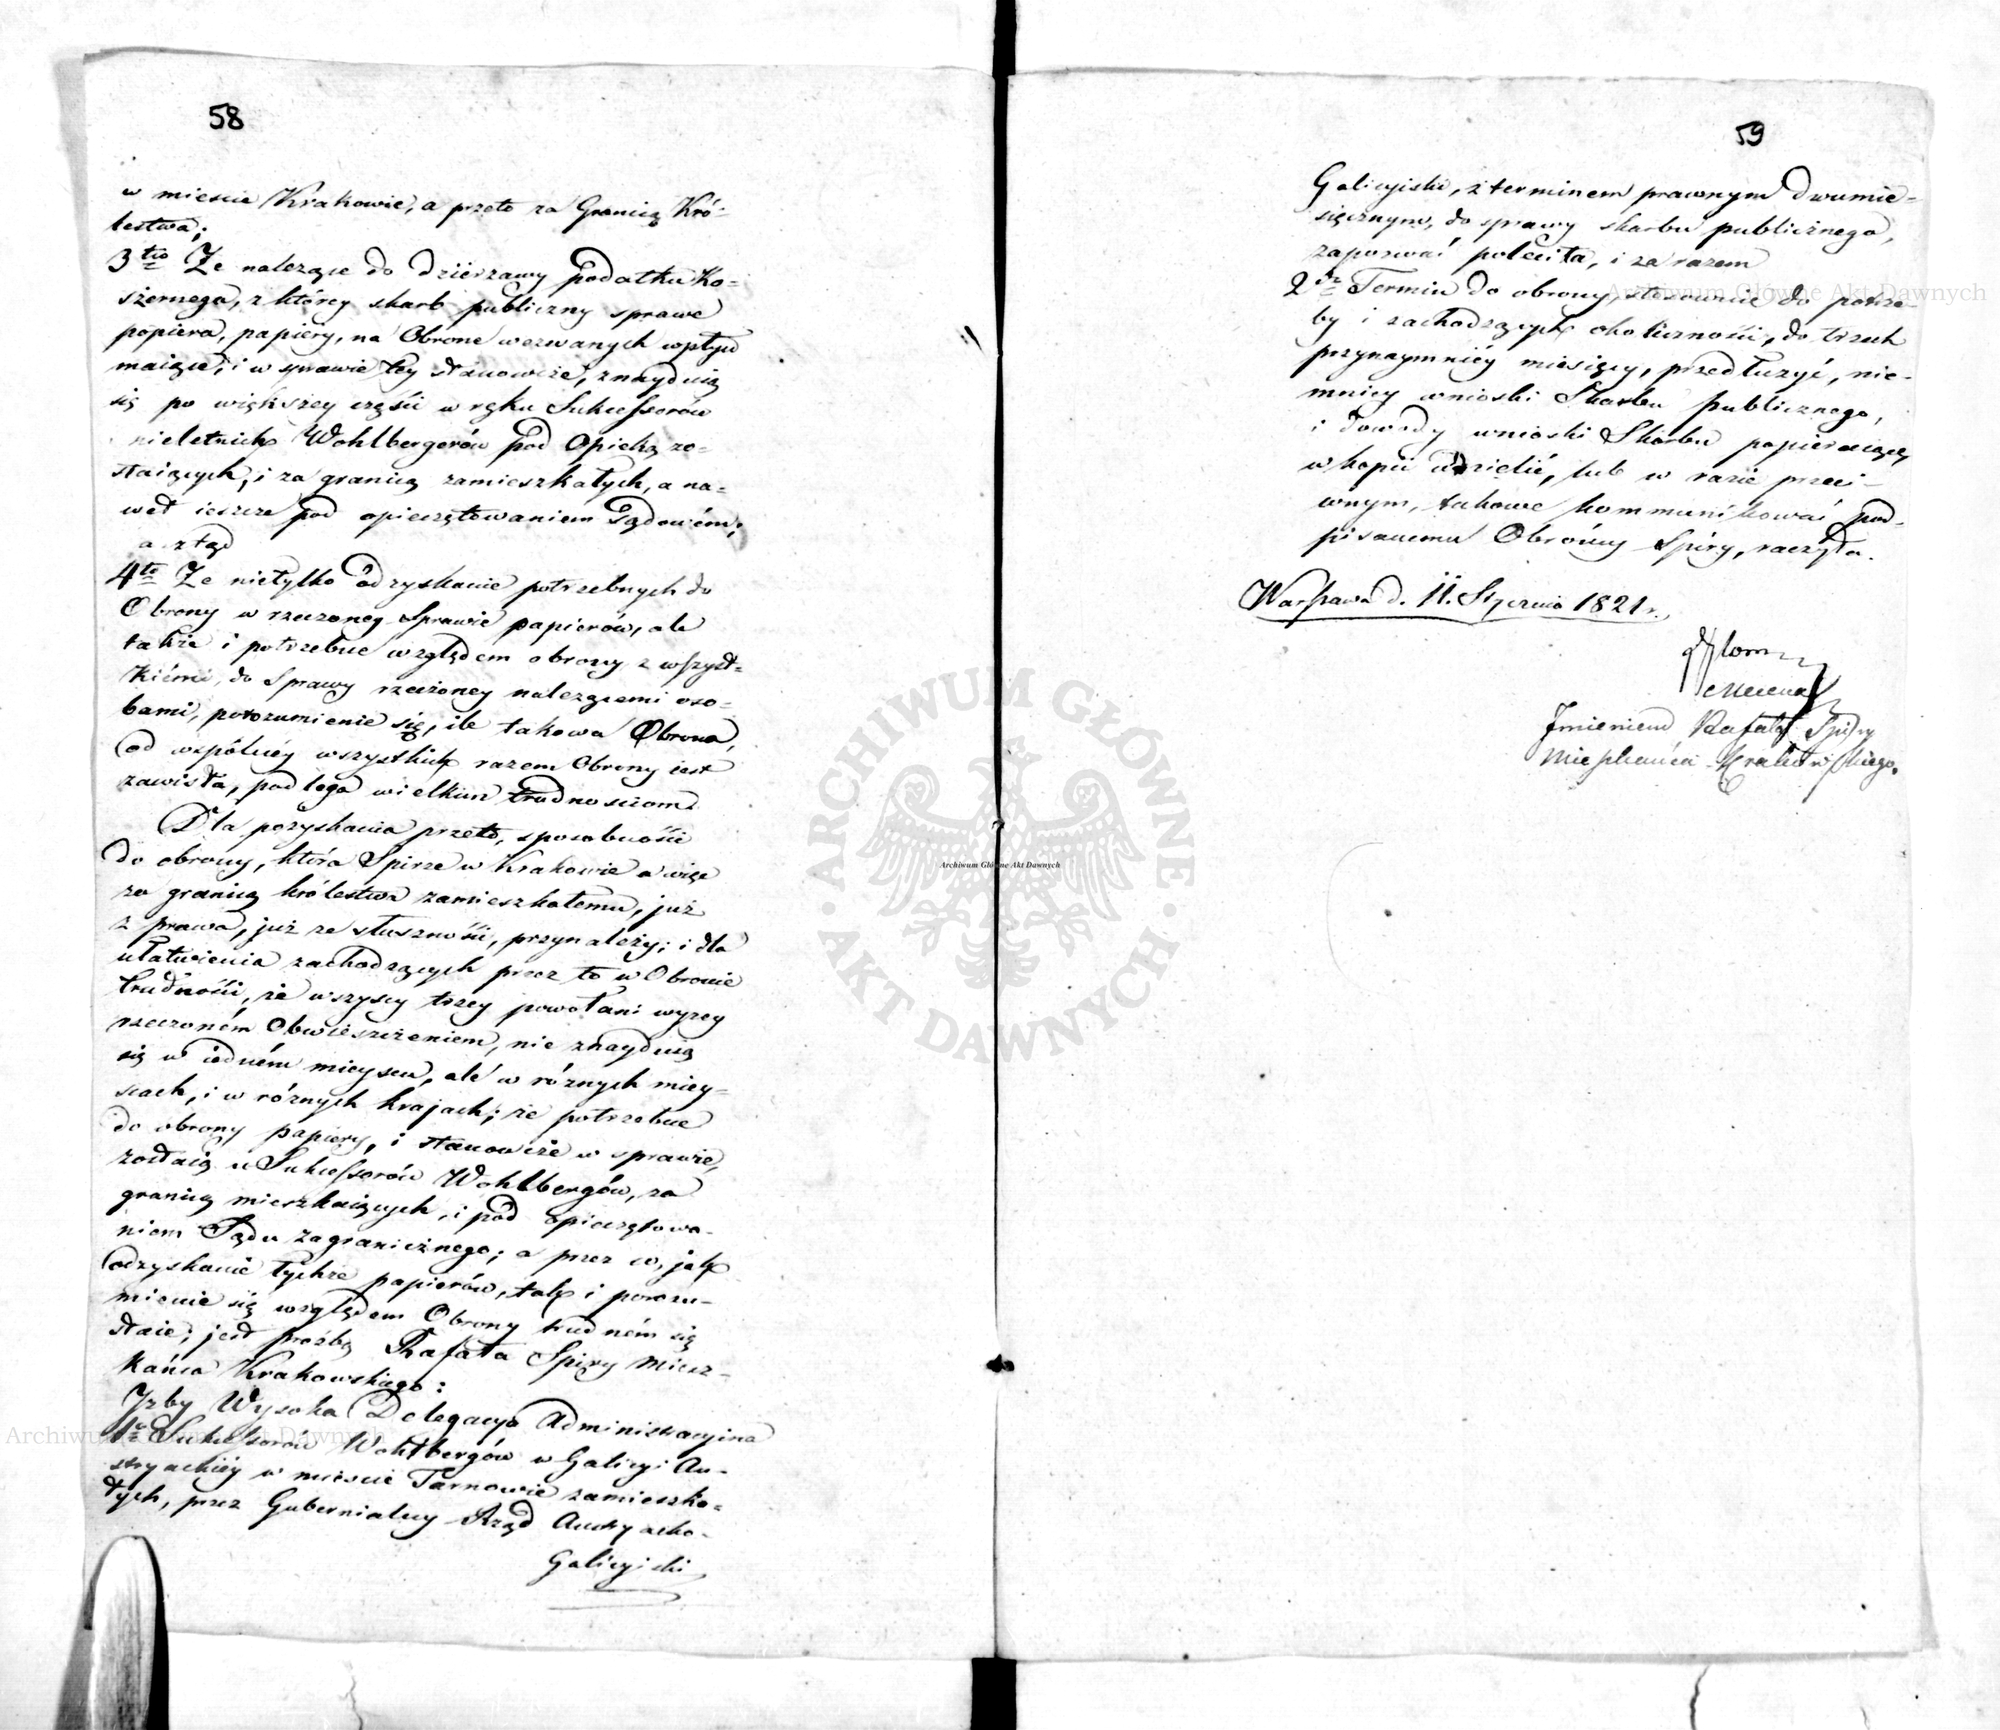 58
w miescie Krakowie, a przeto za Granicą Kró-
lestwa;
3tio Ze nalezące do dzierzawy Podatku Ko-
szernego, z którey skarb publiczny sprawe
popiera, papiery, na Obrone wezwanych wpływ
maiące, i w sprawie tey stanowcze, znayduią
się po większey części w ręku Sukcessorów
nieletnich Wohlbergerów pod Opieką zo-
staiących, i za granicą zamieszkałych, a na-
wet ieszcze pod opieczętowaniem Sądowém;
a ztąd
4to Ze nietylko odzyskanie potrzebnych do
Obrony w rzeczoney Sprawie papierów, ale
także i potrzebne względem obrony z wszyst-
kiémi, do Sprawy rzeczoney nalezącemi oso-
bami, porozumienie się, ile takowa Obrona,
od wspólnéy wszystkich razem Obrony iest
zawisła, podlega wielkim trudnosciom.
Dla pozyskania przeto, sposobności
do obrony, która Spirze w Krakowie a więc
za granicą królestwa zamieszkałemu, już
z prawa, już ze słuszności, przynależy; i dla
ułatwienia zachodzących przez to w Obronie
trudności, że wszyscy trzey powołani wyzey
rzeczoném Obwieszczeniem, nie znayduią
się w iedném mieyscu, ale w różnych miey-
scach, i w różnych krajach; że potrzebne
do obrony papiery, i stanowcze w sprawie,
zostaią u Sukcessorów Wohlbergów, za
granicą mieszkaiących, i pod opieczętowa-
niem Sądu zagranicznego; a przez co, jak
odzyskanie tychże papierów, tak i porozu-
mienie się względem Obrony trudném się
staie; jest prośbą Rafała Spiry Miesz-
kańca Krakowskiego:
Izby Wysoka Delegacya Administracyjna
1o Sukcessorów Wohlbergów w Galicyi Au-
stryackiéy w mieście Tarnowie zamieszka-
łych, przez Gubernialny Rząd Austryacko-
Galicyiski
59
Galicyiski, z terminem prawnym dwumie-
sięcznym, do sprawy skarbu publicznego,
zapozwać poleciła, i zarazem
2do Termin do obrony, stosownie do potrze-
by i zachodzących okoliczności, do trzech
przynaymniéy miesięcy, przedłużyć, nie-
mniey wnioski Skarbu publicznego,
i dowody wnioski Skarbu popieraiące
w kopii udzielić, lub w razie przeci-
wnym, takowe kommunikować pod-
pisanemu Obrońcy Spiry, raczyła.
Warszawa d. 11. Stycznia 1821 r.
Mecenas
Imieniem Rafała Spiry
Mieszkańca Krakowskiego.
ARCHIWUM GŁÓWNE
AKT DAWNYCH
Archiwum Główne Akt Dawnych
Archiwum Główne Akt Dawnych
Archiwum Główne Akt Dawnych